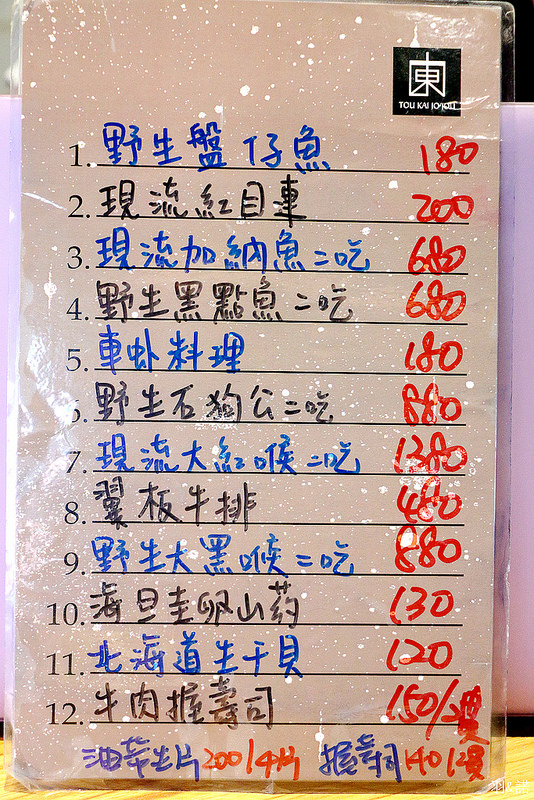 東
TOU KAI JOYOU
1. 野生盤仔魚 180
2. 現流紅目連 200
3. 現流加納魚二吃 680
4. 野生黑點魚二吃 680
5. 車虾料理 180
6. 野生石狗公二吃 880
7. 現流大紅喉二吃 1380
8. 翼板牛排 480
9. 野生大黑喉二吃 880
10. 海旦圭卵山药 130
11. 北海道生干貝 120
12. 牛肉握壽司 150/2貫
油菜生片 200/4片 握壽司 140/2貫